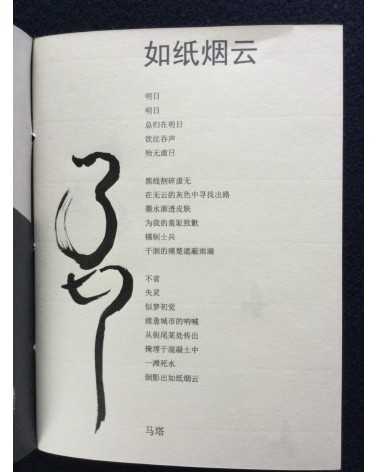 如纸烟云
明日
明日
总归在明日
饮泣吞声
殆无虚日
黑线割碎虚无
在无云的灰色中寻找出路
墨水渐透皮肤
为我的羞耻致歉
橘树士兵
干涸的
不语
失灵
似梦初觉
难愈城市的呐喊
从街尾某处传出
掩埋于混凝土中
一滩死水
倒影出如纸烟云
马塔